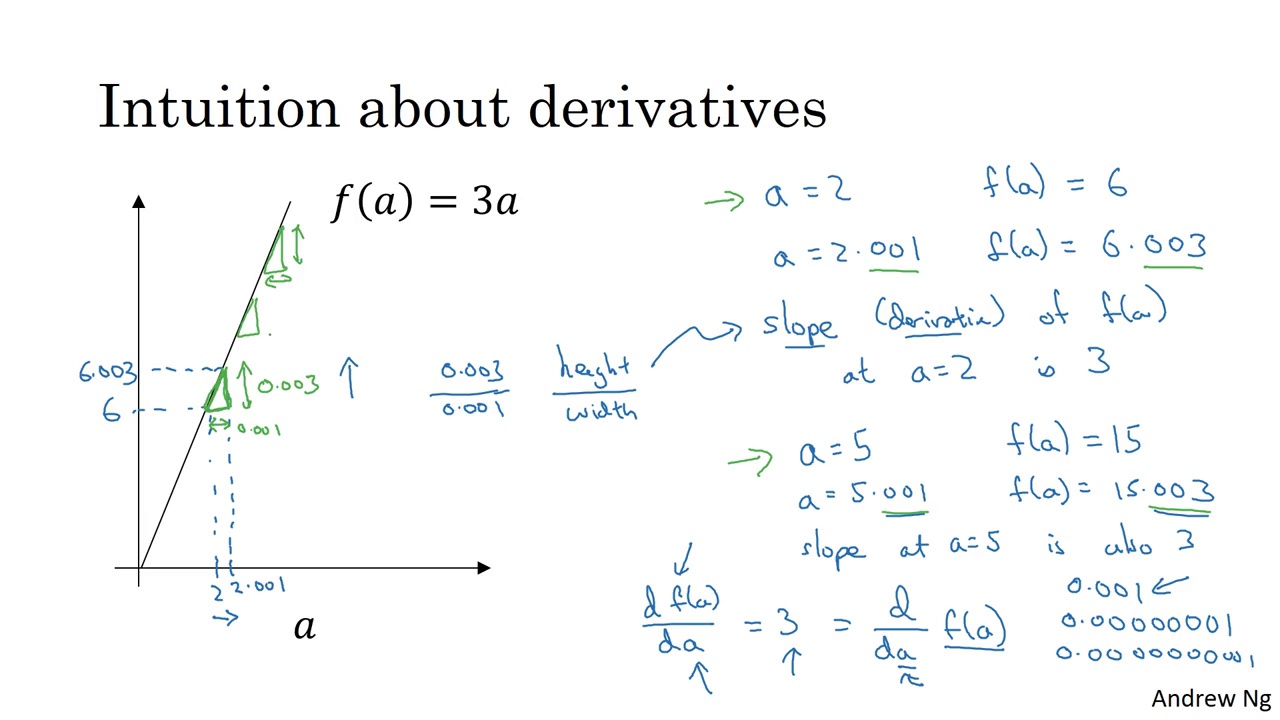 Intuition about derivatives
f(a) = 3a
6.003
6
0.003
0.001
2
2.001
a
0.003
0.001
height
width
a = 2    f(a) = 6
a = 2.001    f(a) = 6.003
slope (derivative) of f(a)
at a=2 is 3
a = 5    f(a) = 15
a = 5.001    f(a) = 15.003
slope at a=5 is also 3
d f(a)
da
= 3 =
d
da
f(a)
0.001
0.00000001
0.0000000001
Andrew Ng